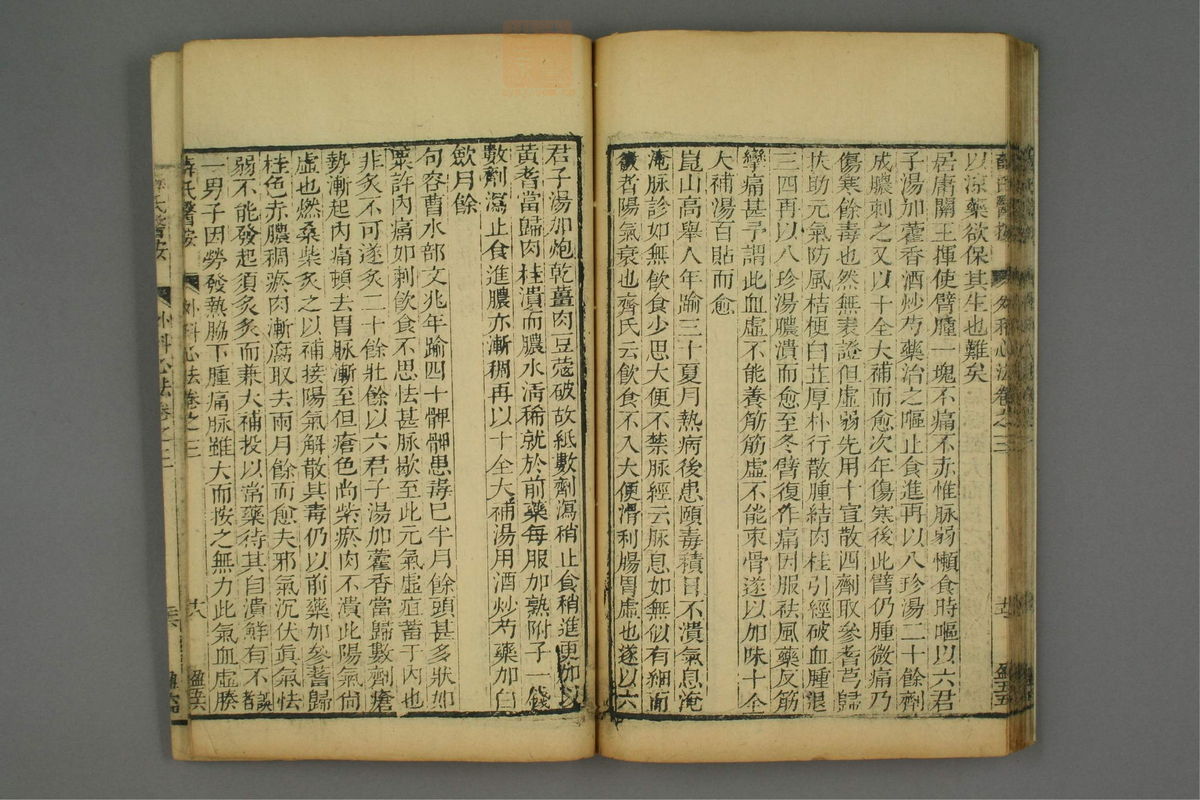 以涼藥欲保其生也難矣
居庸關王揮使臂腫一塊不痛不赤惟脉弱懶食時嘔以六君
子湯加藿香酒炒芍藥治之嘔止食進再以八珍湯二十餘劑
成膿刺之又以十全大補而愈次年傷寒後此臂仍腫微痛乃
傷寒餘毒也然無表證但虛弱先用十宣散四劑取參耆芎歸
扶助元氣防風桔梗白芷厚朴行散腫結肉桂引經破血腫退
三四再以八珍湯膿潰而愈至冬臂復作痛因服祛風藥反筋
攣痛甚予謂此血虛不能養筋筋虛不能束骨遂以加味十全
大補湯百貼而愈
崑山高舉人年踰三十夏月熱病後患頤毒積日不潰氣息淹
淹脉診如無飲食少思大便不禁脉經云脉息如無似有細而
微者陽氣衰也齊氏云飲食不入大便滑利腸胃虛也遂以六
薛氏醫按 外科心法卷之三 盈五五
君子湯加炮乾薑肉豆蔻破故紙數劑瀉稍止食稍進更加以
黃耆當歸肉桂潰而膿水清稀就於前藥每服加熟附子一錢
數劑瀉止食進膿亦漸稠再以十全大補湯用酒炒芍藥加白
歛月餘
句容曹水部文兆年踰四十髀胛患毒已半月餘頭甚多狀如
粟許內痛如刺飲食不思怯甚脉歇至此元氣虛疽蓄于內也
非灸不可遂灸二十餘壯餘以六君子湯加藿香當歸數劑瘡
勢漸起內痛頓去胃脉漸至但瘡色尚紫瘀肉不潰此陽氣尚
虛也燃桑柴灸之以補接陽氣解散其毒仍以前藥加參蓍歸
桂色赤膿稠瘀肉漸腐取去兩月餘而愈夫邪氣沉伏眞氣怯
弱不能發起須灸灸而兼大補投以常藥待其自潰鮮有不誤者
一男子因勞發熱脇下腫痛脉雖大而按之無力此氣血虛腠
薛氏醫按 外科心法卷之三 六 盈五六